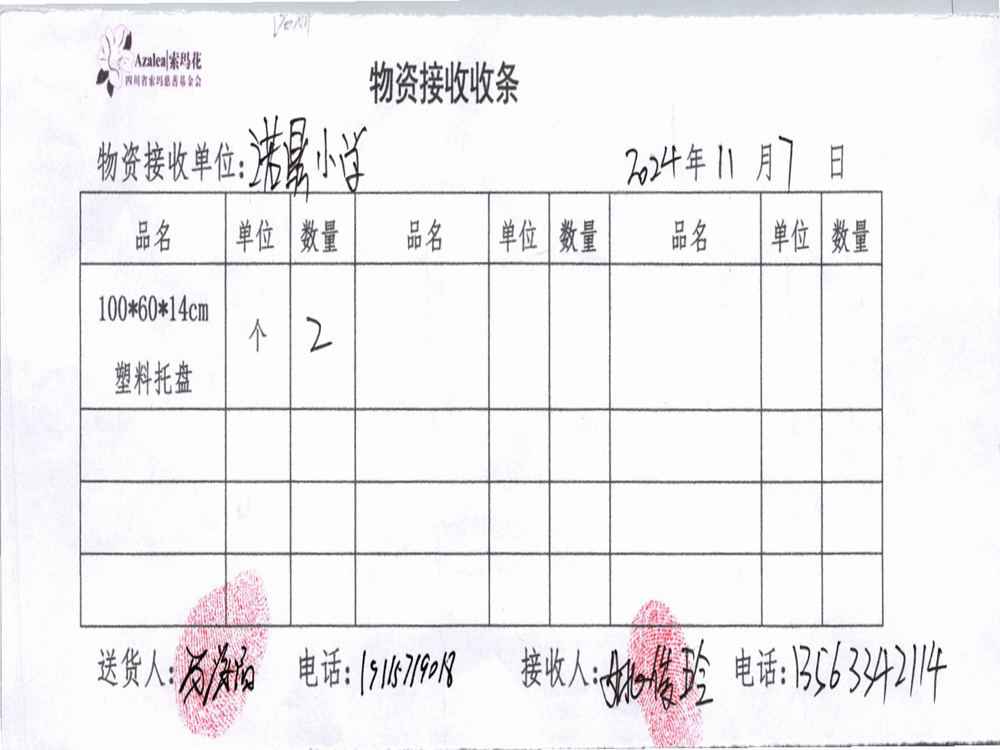 Azalea|索玛花
四川省索玛慈善基金会
物资接收收条
物资接收单位: 诺鼎小学
2024年11月7日
品名 单位 数量 品名 单位 数量 品名 单位 数量
100*60*14cm
塑料托盘 个 2
送货人: 电话: 19115719018 接收人: 姚俊玲 电话: 13563342114